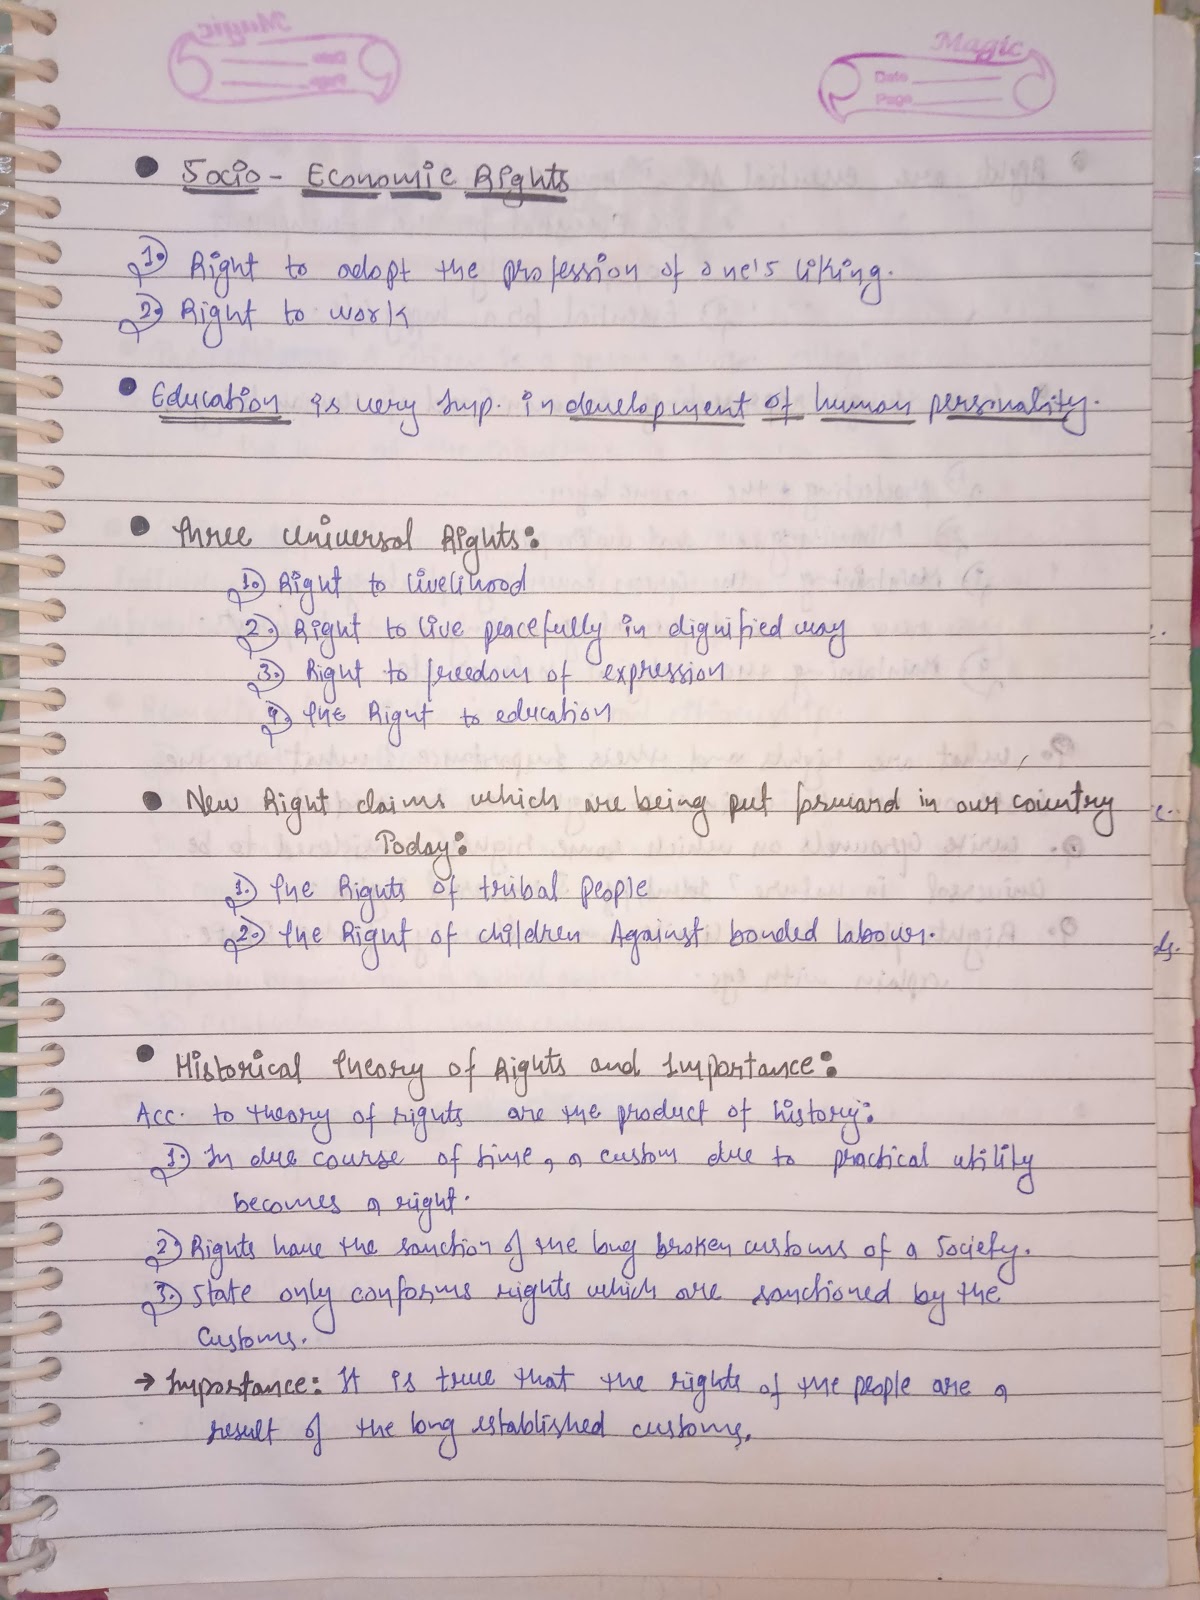 Magic
Date
Page
• Socio - Economic Rights
1. Right to adopt the profession of one's liking.
2. Right to work
• Education is very Imp. in development of human personality.
• Three Universal Rights:
1. Right to livelihood
2. Right to live peacefully in dignified way
3. Right to freedom of expression
4. The Right to education
• New Right claims which are being put forward in our country
Today:
1. The Rights of tribal people
2. The Right of children Against bonded labour.
• Historical Theory of Rights and Importance:
Acc. to theory of rights are the product of history:
1. In due course of time, a custom due to practical utility
becomes a right.
2. Rights have the sanction of the long broken customs of a Society.
3. State only conforms rights which are sanctioned by the
Customs.
→ Importance: It is true that the rights of the people are a
result of the long established customs.